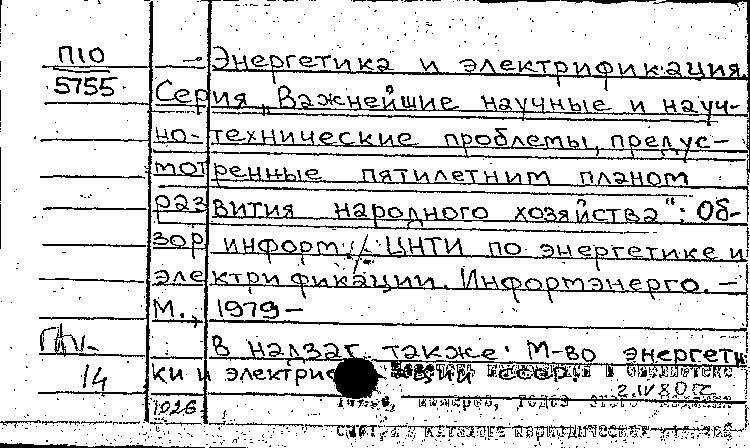 П10
5755
Энергетика и электрификация.
Серия „Важнейшие научные и науч-
но-технические проблемы, предус-
мотренные пятилетним планом
развития народного хозяйства“: Об-
зор информ. / ЦНТИ по энергетике и
электрификации. Информэнерго. –
М., 1979–
В надзаг. также: М-во энергети
ки и электри ции СССР.
14
1026